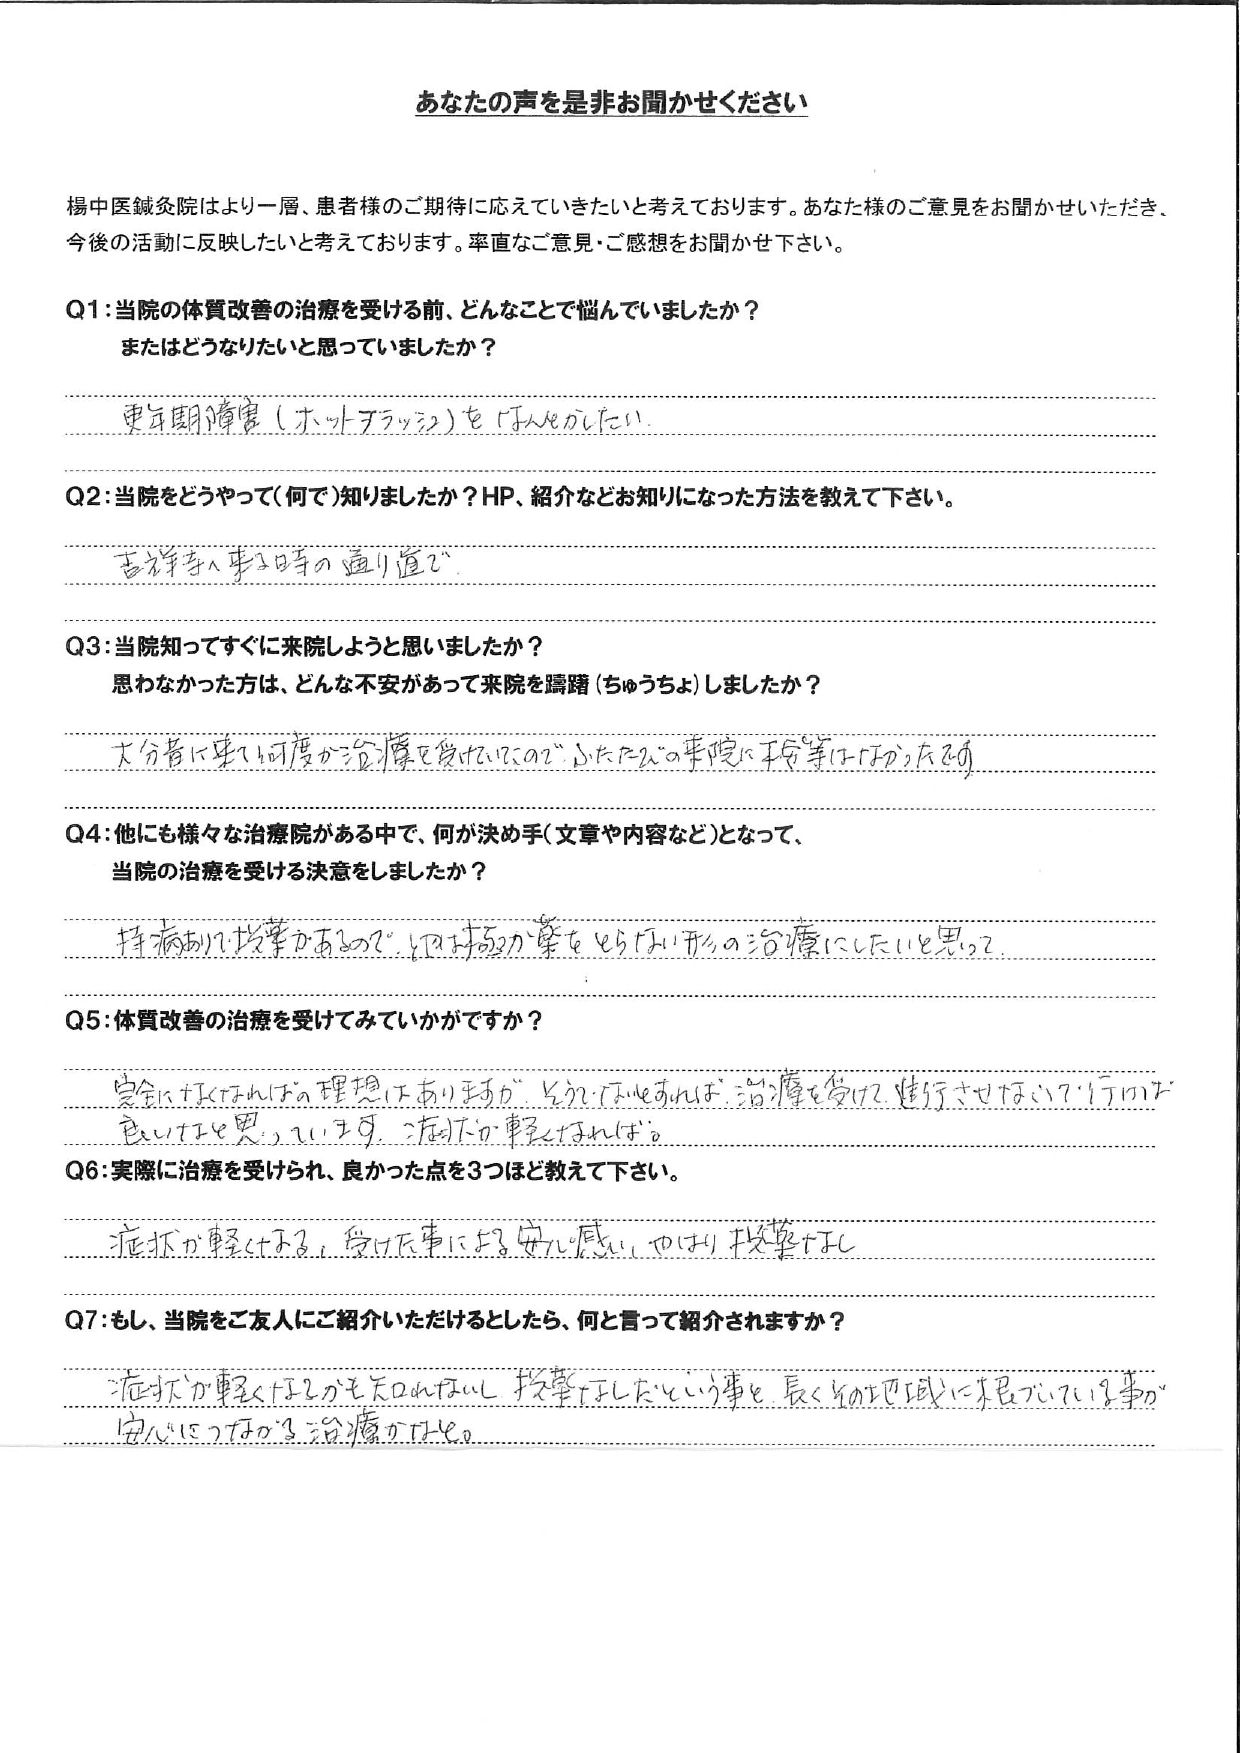 あなたの声を是非お聞かせください
楊中医鍼灸院はより一層、患者様のご期待に応えていきたいと考えております。あなた様のご意見をお聞かせいただき、
今後の活動に反映したいと考えております。率直なご意見・ご感想をお聞かせ下さい。
Q1：当院の体質改善の治療を受ける前、どんなことで悩んでいましたか？
またはどうなりたいと思っていましたか？
更年期障害（ホットフラッシュ）をなんとかしたい.
Q2：当院をどうやって（何で）知りましたか？HP、紹介などお知りになった方法を教えて下さい。
吉祥寺へ来る時の通り道で.
Q3：当院知ってすぐに来院しようと思いましたか？
思わなかった方は、どんな不安があって来院を躊躇（ちゅうちょ）しましたか？
大分昔に来て何度か治療を受けていたので、ふたたびの来院に不安等はなかったです
Q4：他にも様々な治療院がある中で、何が決め手（文章や内容など）となって、
当院の治療を受ける決意をしましたか？
持病ありで投薬があるので、極力薬をとらない形の治療にしたいと思って.
Q5：体質改善の治療を受けてみていかがですか？
完全になくなればの理想はありますが、そうでないとすれば、治療を受けて、進行させないで行ければ
良いなと思っています. 症状が軽くなれば。
Q6：実際に治療を受けられ、良かった点を3つほど教えて下さい。
症状が軽くなる、受けた事による安心感、やはり投薬なし
Q7：もし、当院をご友人にご紹介いただけるとしたら、何と言って紹介されますか？
症状が軽くなるかも知れないし 投薬なしだという事と、長くその地域に根づいている事が
安心につながる治療かなと。